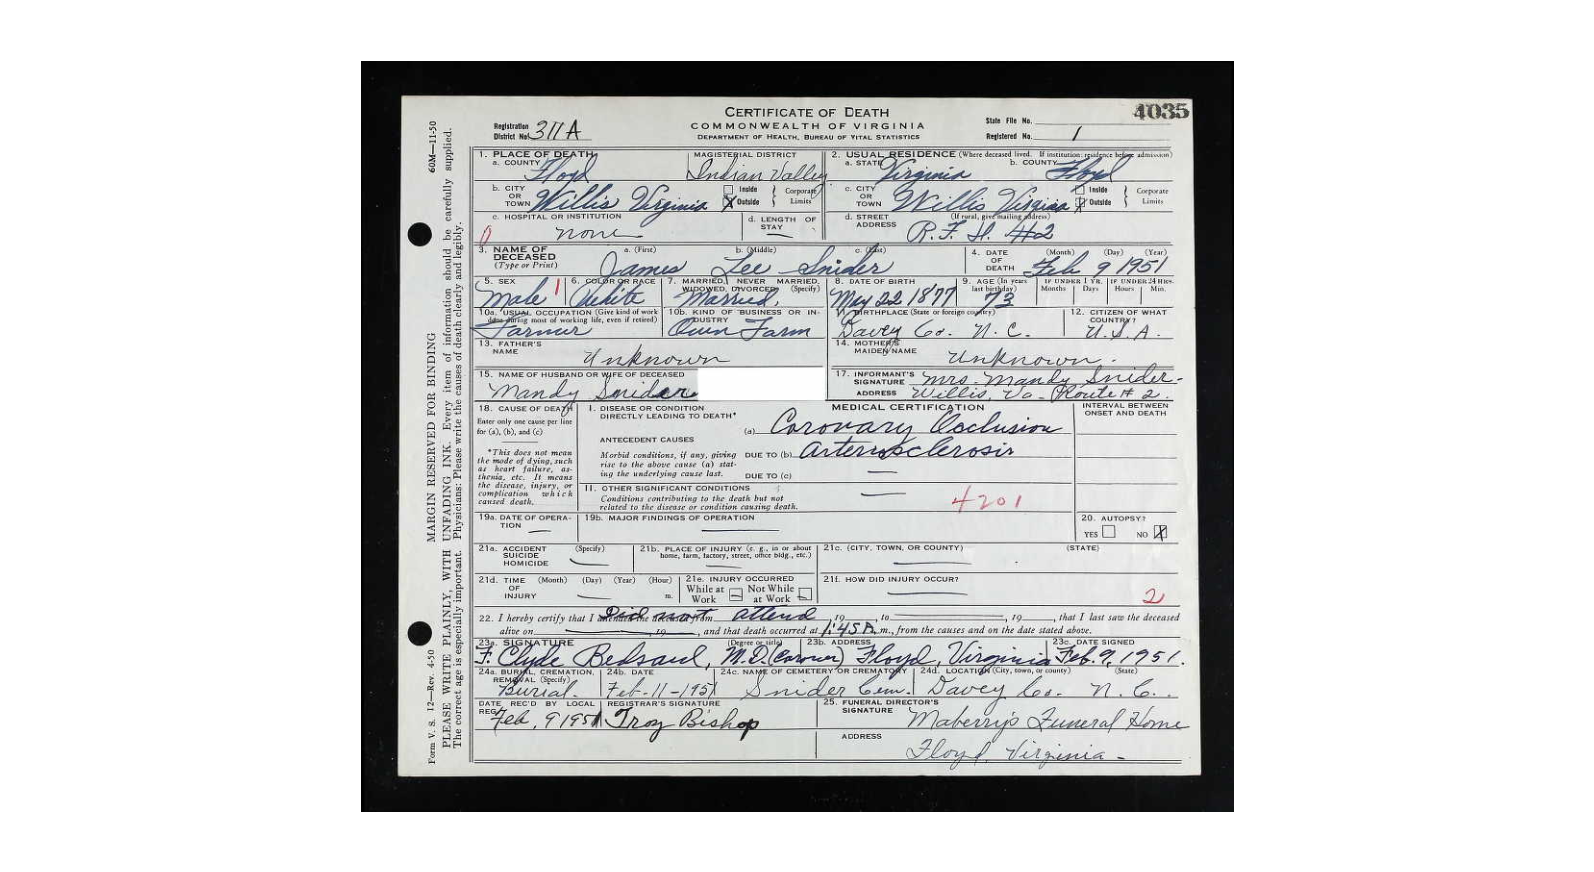 4035
CERTIFICATE OF DEATH
COMMONWEALTH OF VIRGINIA
DEPARTMENT OF HEALTH, BUREAU OF VITAL STATISTICS
Registration District No. 311A
State File No.
Registered No. 1
1. PLACE OF DEATH
a. COUNTY Floyd
MAGISTERIAL DISTRICT Indian Valley
b. CITY OR TOWN Willis Virginia
Inside
Outside X
Corporate Limits
c. HOSPITAL OR INSTITUTION none
0
d. LENGTH OF STAY —
2. USUAL RESIDENCE (Where deceased lived. If institution: residence before admission)
a. STATE Virginia
b. COUNTY Floyd
c. CITY OR TOWN Willis Virginia
Inside
Outside X
Corporate Limits
d. STREET ADDRESS (If rural, give mailing address) R.F.D. #2
3. NAME OF DECEASED (Type or Print)
a. (First) James b. (Middle) Lee c. (Last) Snider
4. DATE OF DEATH (Month) (Day) (Year) Feb 9 1951
5. SEX Male 1
6. COLOR OR RACE White
7. MARRIED, NEVER MARRIED, WIDOWED, DIVORCED (Specify) Married.
8. DATE OF BIRTH May 22 1877
9. AGE (In years last birthday) 73
IF UNDER 1 YR. Months Days
IF UNDER 24 HRS. Hours Min.
10a. USUAL OCCUPATION (Give kind of work done during most of working life, even if retired) Farmer
10b. KIND OF BUSINESS OR INDUSTRY Own Farm
11. BIRTHPLACE (State or foreign country) Davey Co. N.C.
12. CITIZEN OF WHAT COUNTRY? U.S.A.
13. FATHER'S NAME Unknown
14. MOTHER'S MAIDEN NAME Unknown.
15. NAME OF HUSBAND OR WIFE OF DECEASED Mandy Snider
17. INFORMANT'S SIGNATURE Mrs. Mandy Snider-
ADDRESS Willis, Va- Route # 2.
18. CAUSE OF DEATH
Enter only one cause per line for (a), (b), and (c)
*This does not mean the mode of dying, such as heart failure, asthenia, etc. It means the disease, injury, or complication which caused death.
MEDICAL CERTIFICATION
INTERVAL BETWEEN ONSET AND DEATH
I. DISEASE OR CONDITION DIRECTLY LEADING TO DEATH*
(a) Coronary Occlusion
ANTECEDENT CAUSES
Morbid conditions, if any, giving rise to the above cause (a) stating the underlying cause last.
DUE TO (b) Arteriosclerosis
DUE TO (c) —
II. OTHER SIGNIFICANT CONDITIONS
Conditions contributing to the death but not related to the disease or condition causing death.
—
4201
19a. DATE OF OPERATION —
19b. MAJOR FINDINGS OF OPERATION —
20. AUTOPSY?
YES NO X
21a. ACCIDENT SUICIDE HOMICIDE (Specify) —
21b. PLACE OF INJURY (e. g., in or about home, farm, factory, street, office bldg., etc.) —
21c. (CITY, TOWN, OR COUNTY) (STATE) —
21d. TIME OF INJURY (Month) (Day) (Year) (Hour) m. —
21e. INJURY OCCURRED
While at Work
Not While at Work
21f. HOW DID INJURY OCCUR? —
2
22. I hereby certify that I attended the deceased from Did not attend, 19 , to , 19 , that I last saw the deceased
alive on , 19 , and that death occurred at 1:45 A. m., from the causes and on the date stated above.
23a. SIGNATURE (Degree or title) F. Clyde Bedsaul, M.D. (Coroner)
23b. ADDRESS Floyd, Virginia
23c. DATE SIGNED Feb. 9, 1951.
24a. BURIAL, CREMATION, REMOVAL (Specify) Burial.
24b. DATE Feb-11-1951
24c. NAME OF CEMETERY OR CREMATORY Snider Cem.
24d. LOCATION (City, town, or county) (State) Davey Co. N.C.
DATE REC'D BY LOCAL REG. Feb, 9 1951
REGISTRAR'S SIGNATURE Troy Bishop
25. FUNERAL DIRECTOR'S SIGNATURE Maberry's Funeral Home
ADDRESS Floyd, Virginia-
Form V. S. 12—Rev. 4-50 60M—11-50
MARGIN RESERVED FOR BINDING
PLEASE WRITE PLAINLY, WITH UNFADING INK. Every item of information should be carefully supplied.
The correct age is especially important. Physicians: Please write the causes of death clearly and legibly.